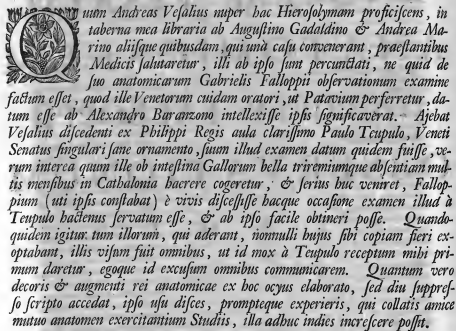 Quum Andreas Veſalius nuper hac Hieroſolymam proficiſcens, in
taberna mea libraria ab Auguſtino Gadaldino & Andrea Ma-
rino aliiſque quibusdam, qui unà caſu convenerant, praeſtantibus
Medicis ſalutaretur, illi ab ipſo ſunt percunctati, ne quid de
ſuo anatomicarum Gabrielis Falloppii obſervationum examine
factum eſſet, quod ille Venetorum cuidam oratori, ut Patavium perferretur, da-
tum eſſe ab Alexandro Baranzono intellexiſſe ipſis ſignificaverat. Ajebat
Veſalius diſcedenti ex Philippi Regis aula clariſſimo Paulo Teupulo, Veneti
Senatus ſingulari ſane ornamento, ſuum illud examen datum quidem fuiſſe, ve-
rum interea quum ille ob inteſtina Gallorum bella triremiumque abſentiam mul-
tis menſibus in Cathalonia haerere cogeretur, & ſerius huc veniret, Fallop-
pium (uti ipſis conſtabat) è vivis diſceſſiſſe hacque occaſione examen illud à
Teupulo hactenus ſervatum eſſe, & ab ipſo facile obtineri poſſe. Quando-
quidem igitur tum illorum, qui aderant, nonnulli hujus ſibi copiam fieri ex-
optabant, illis viſum fuit omnibus, ut id mox à Teupulo receptum mihi pri-
mum daretur, egoque id excuſum omnibus communicarem. Quantum vero
decoris & augmenti rei anatomicae ex hoc ocyus elaborato, ſed diu suppreſ-
ſo ſcripto accedat, ipſo uſu diſces, prompteque experieris, qui collatis amice
mutuo anatomen exercitantium Studiis, illa adhuc indies increſcere poſſit.